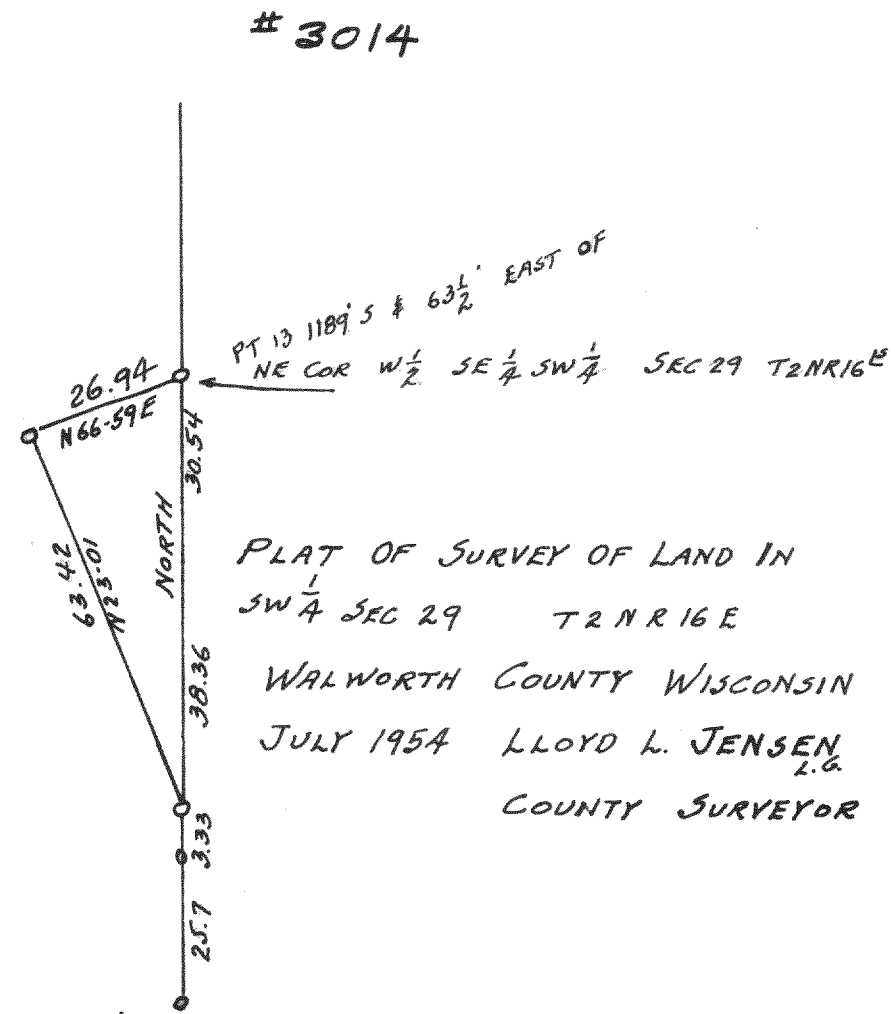 # 3014
PT 13 1189' S & 63 1/2' EAST OF
NE COR W 1/2 SE 1/4 SW 1/4 SEC 29 T2NR16E
26.94
N66-59E
30.54
NORTH
63.42
N23-01
38.36
3.33
25.7
PLAT OF SURVEY OF LAND IN
SW 1/4 SEC 29 T2NR16E
WALWORTH COUNTY WISCONSIN
JULY 1954 LLOYD L. JENSEN
L.G.
COUNTY SURVEYOR